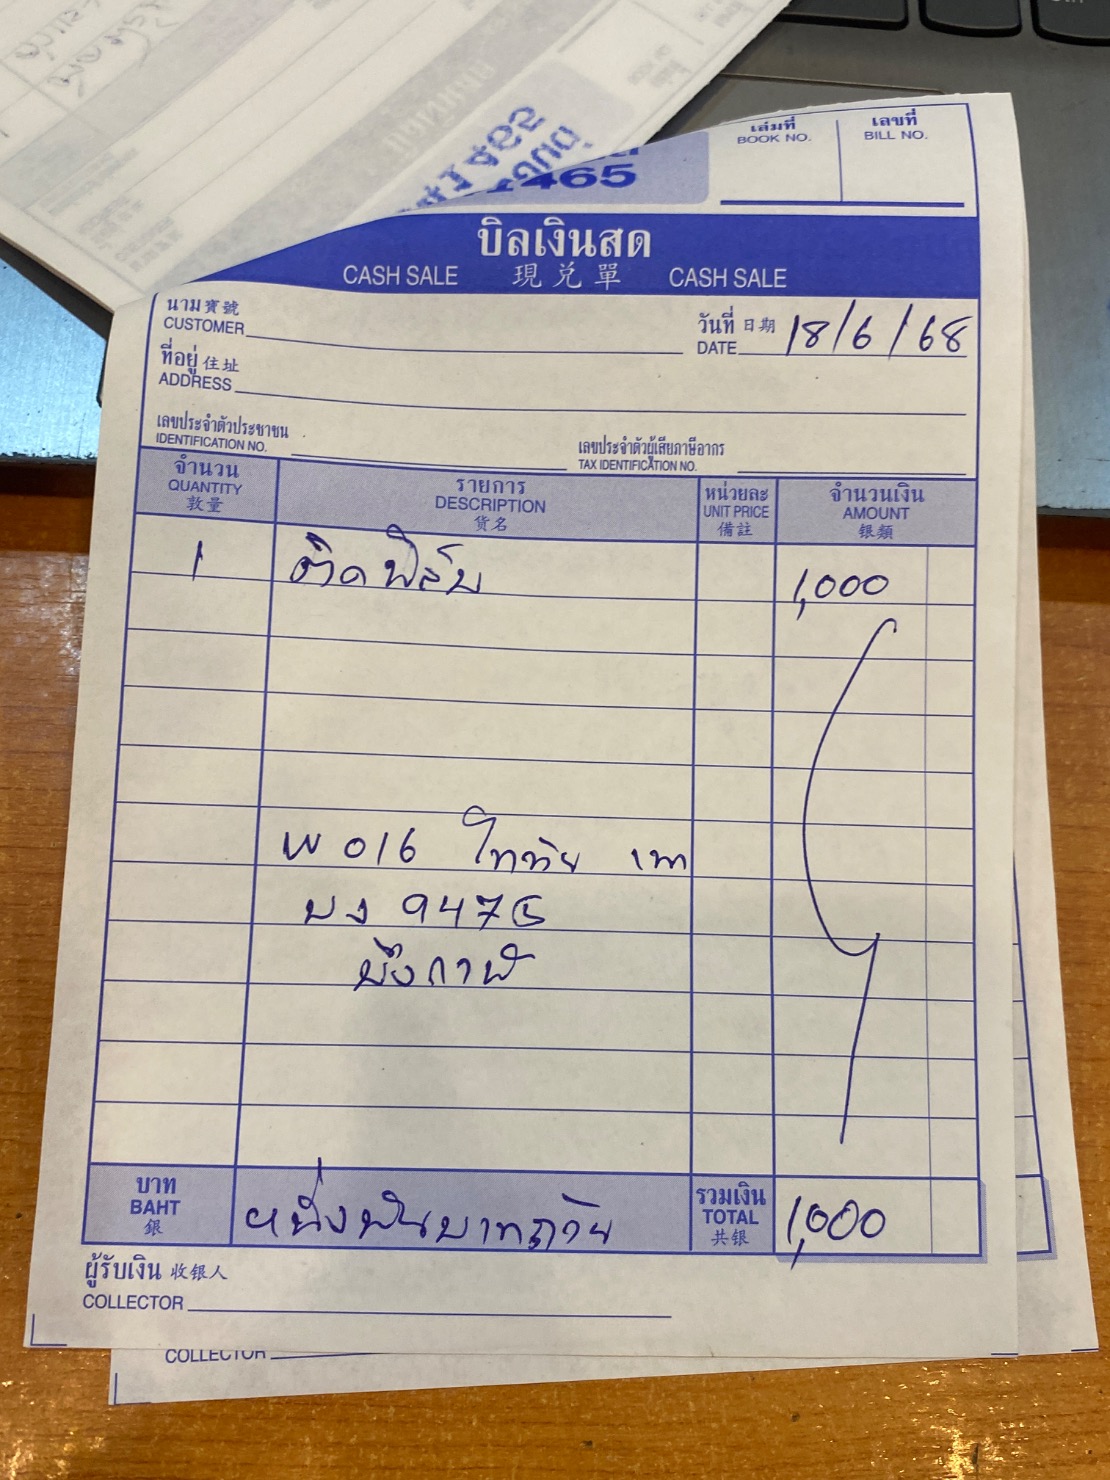 เล่มที่
BOOK NO.
เลขที่
BILL NO.
465
บิลเงินสด
CASH SALE 現兌單 CASH SALE
นาม寶號
CUSTOMER
วันที่ 日期
DATE 18/6/68
ที่อยู่ 住址
ADDRESS
เลขประจำตัวประชาชน
IDENTIFICATION NO.
เลขประจำตัวผู้เสียภาษีอากร
TAX IDENTIFICATION NO.
จำนวน
QUANTITY
敦量
รายการ
DESCRIPTION
货名
หน่วยละ
UNIT PRICE
備註
จำนวนเงิน
AMOUNT
银類
1 ติดฟิล์ม 1,000
W 016
บง 9475
บึงกาฬ
บาท
BAHT
銀
หนึ่งพันบาทถ้วน
รวมเงิน
TOTAL
共银
1,000
ผู้รับเงิน 收银人
COLLECTOR
COLLECTOR